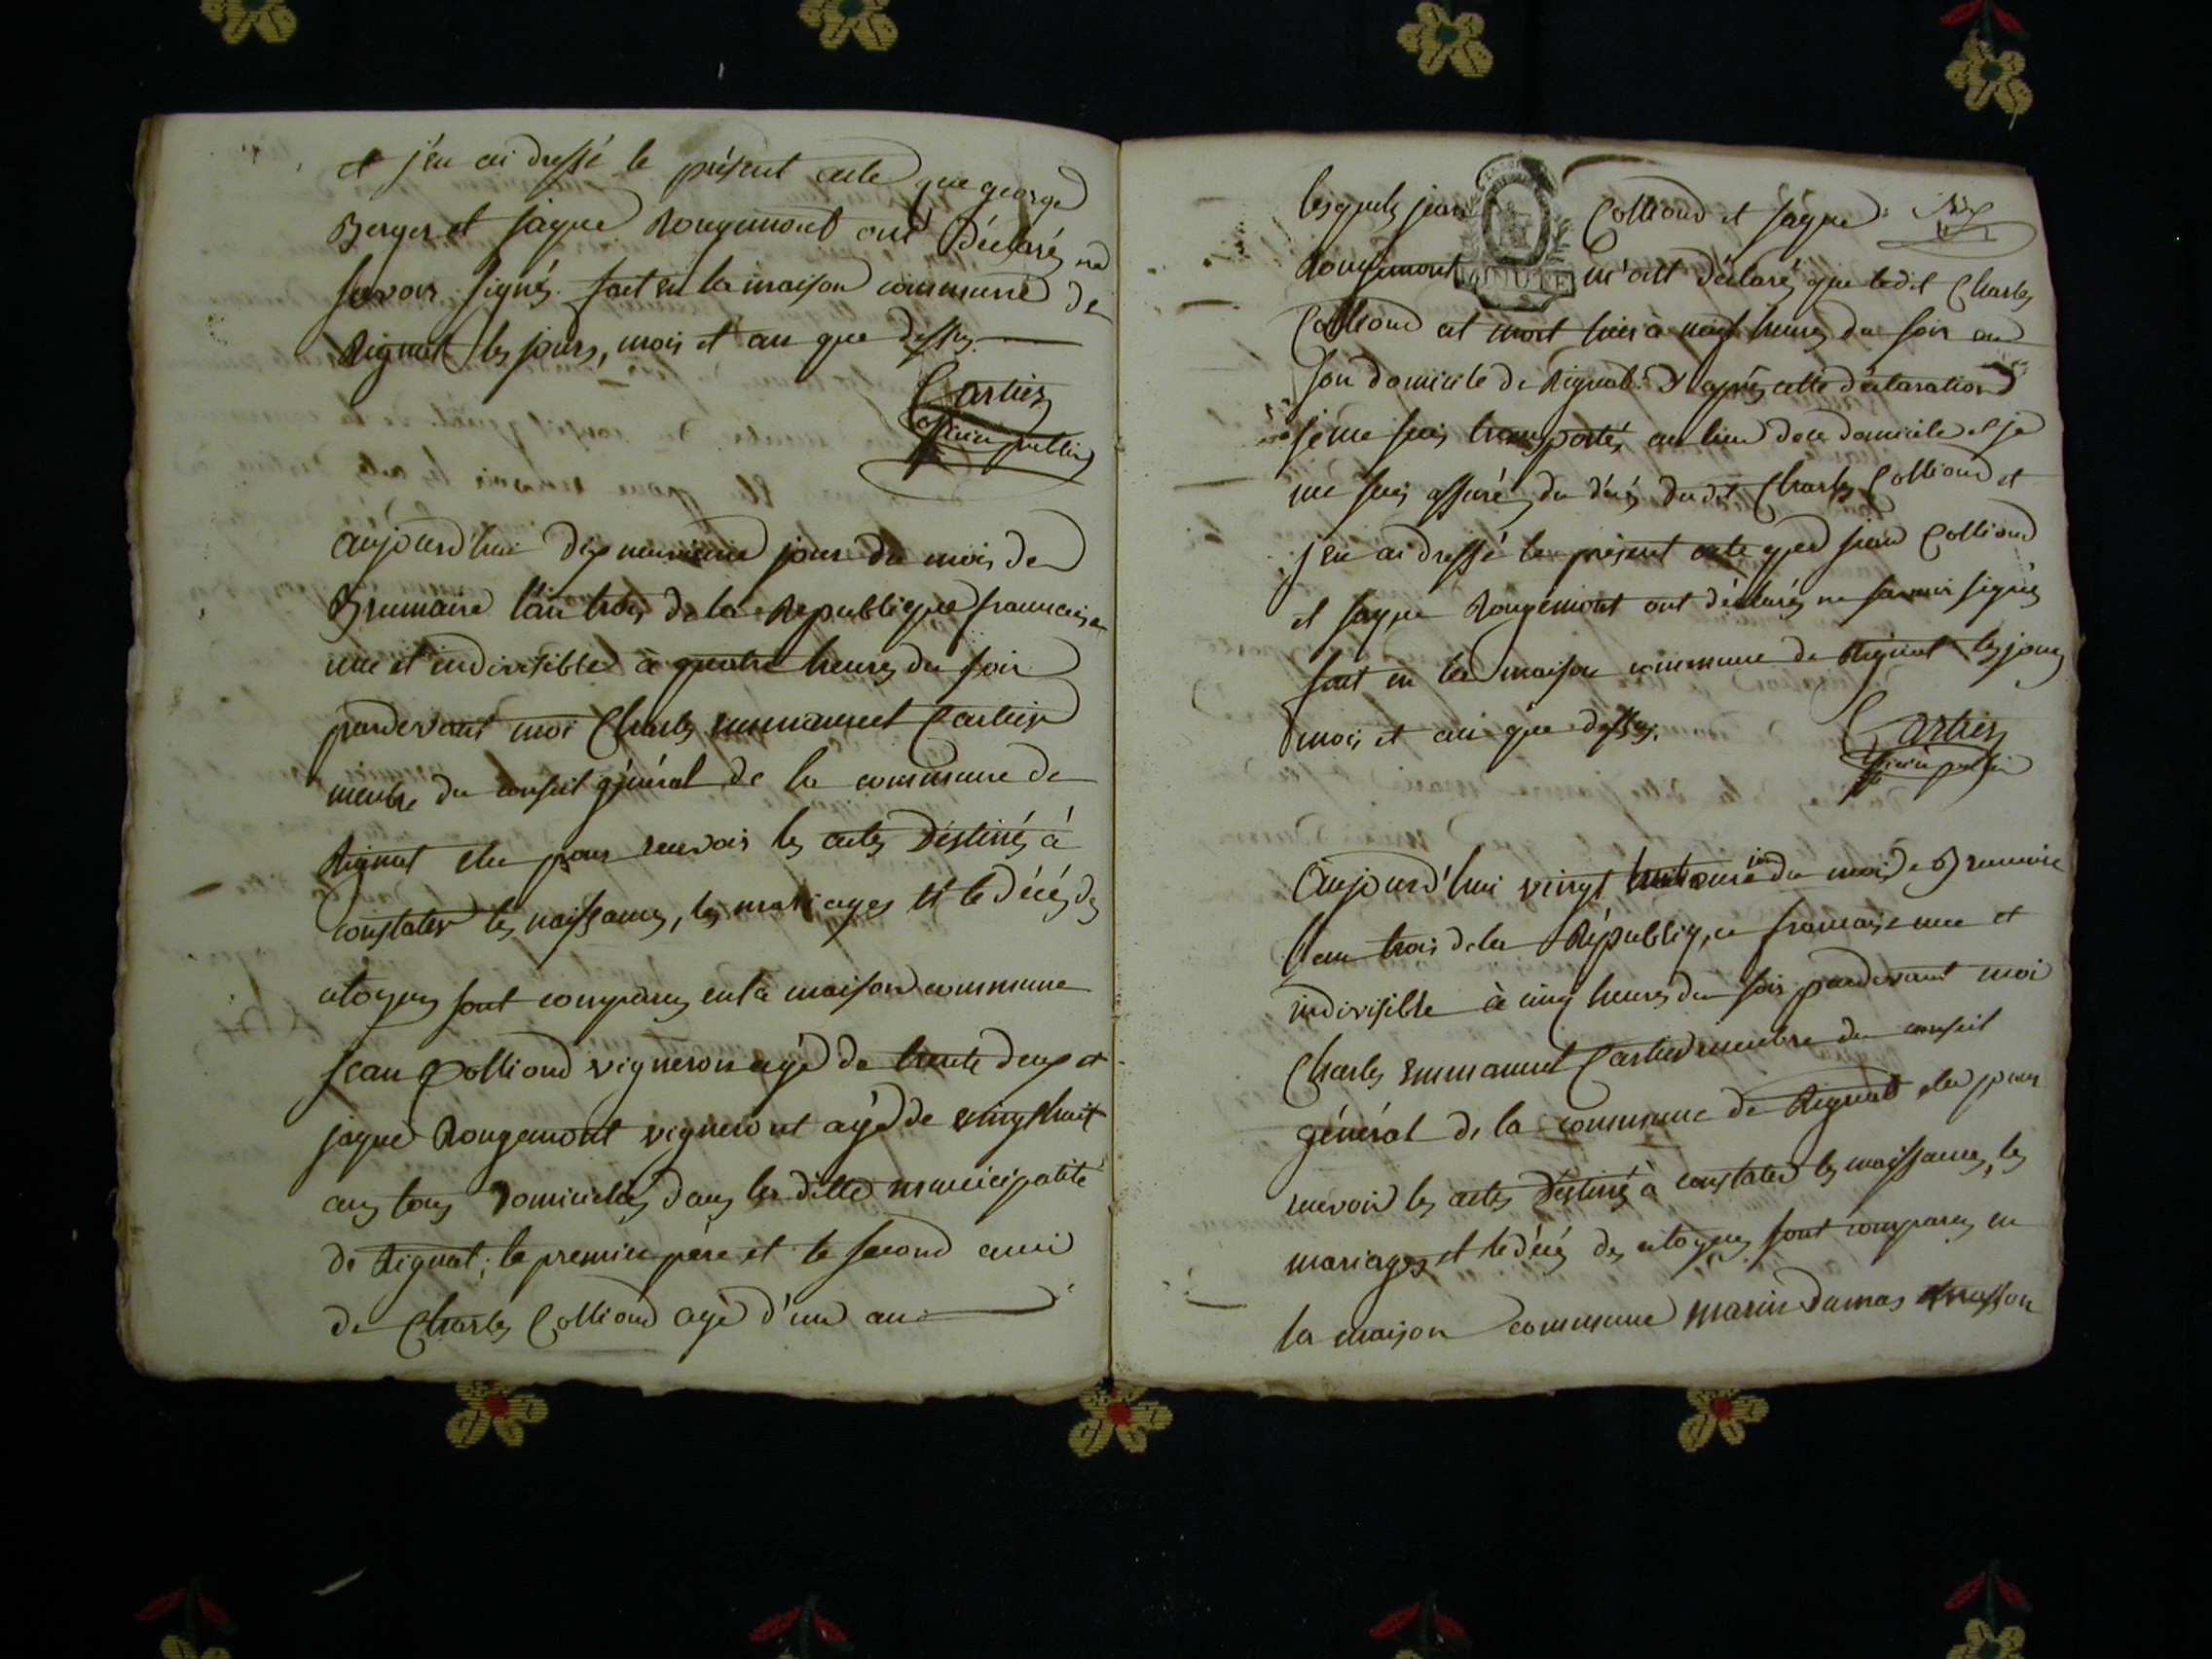 et j'en ai dressé le présent acte que george
Berger et jaque Rougemont ont déclarés ne
savoir signés. fait en la maison commune de
Rignat les jours, mois et an que dessus.
Cartier
officier public
aujourd'hui dix neuvieme jour du mois de
Brumaire l'an trois de la Republique francaise
une et indivisible à quatre heures du soir
pardevant moi Charles emmanuel Cartier
membre du conseil général de la commune de
Rignat elu pour recevoir les actes déstinés à
constater les naissances, les mariages et le décés des
citoyens sont comparus en la maison commune
jean Colliond vigneron agé de trente deux et
jaque Rougemont vigneront agé de vingt huit
ans tous domiciliés dans la ditte municipalité
de Rignat; le premier père et le second ami
de Charles Colliond agé d'un an
lesquels jean Colliond et jaque
Rougemont m'ont déclaré que ledit Charles
MINUTE
Colliond est mort hier à neuf heures du soir en
son domicile de Rignat. D'après cette déclaration
je me suis transportés au lieu de ce domicile et je
me suis assurés du décés dudit Charles Colliond et
j'en ai dressé le présent acte que jean Colliond
et jaque Rougemont ont déclarés ne savoir signés
fait en la maison commune de Rignat les jours
mois et an que dessus.
Cartier
officier public
Aujourd'hui vingt du mois de Brumaire
l'an trois de la République francaise une et
indivisible à cinq heures du soir pardevant moi
Charles emmanuel Cartier membre du conseil
général de la commune de Rignat elu pour
recevoir les actes déstinés à constater les naissances, les
mariages et le décés des citoyens sont comparus en
la maison commune marin dumas